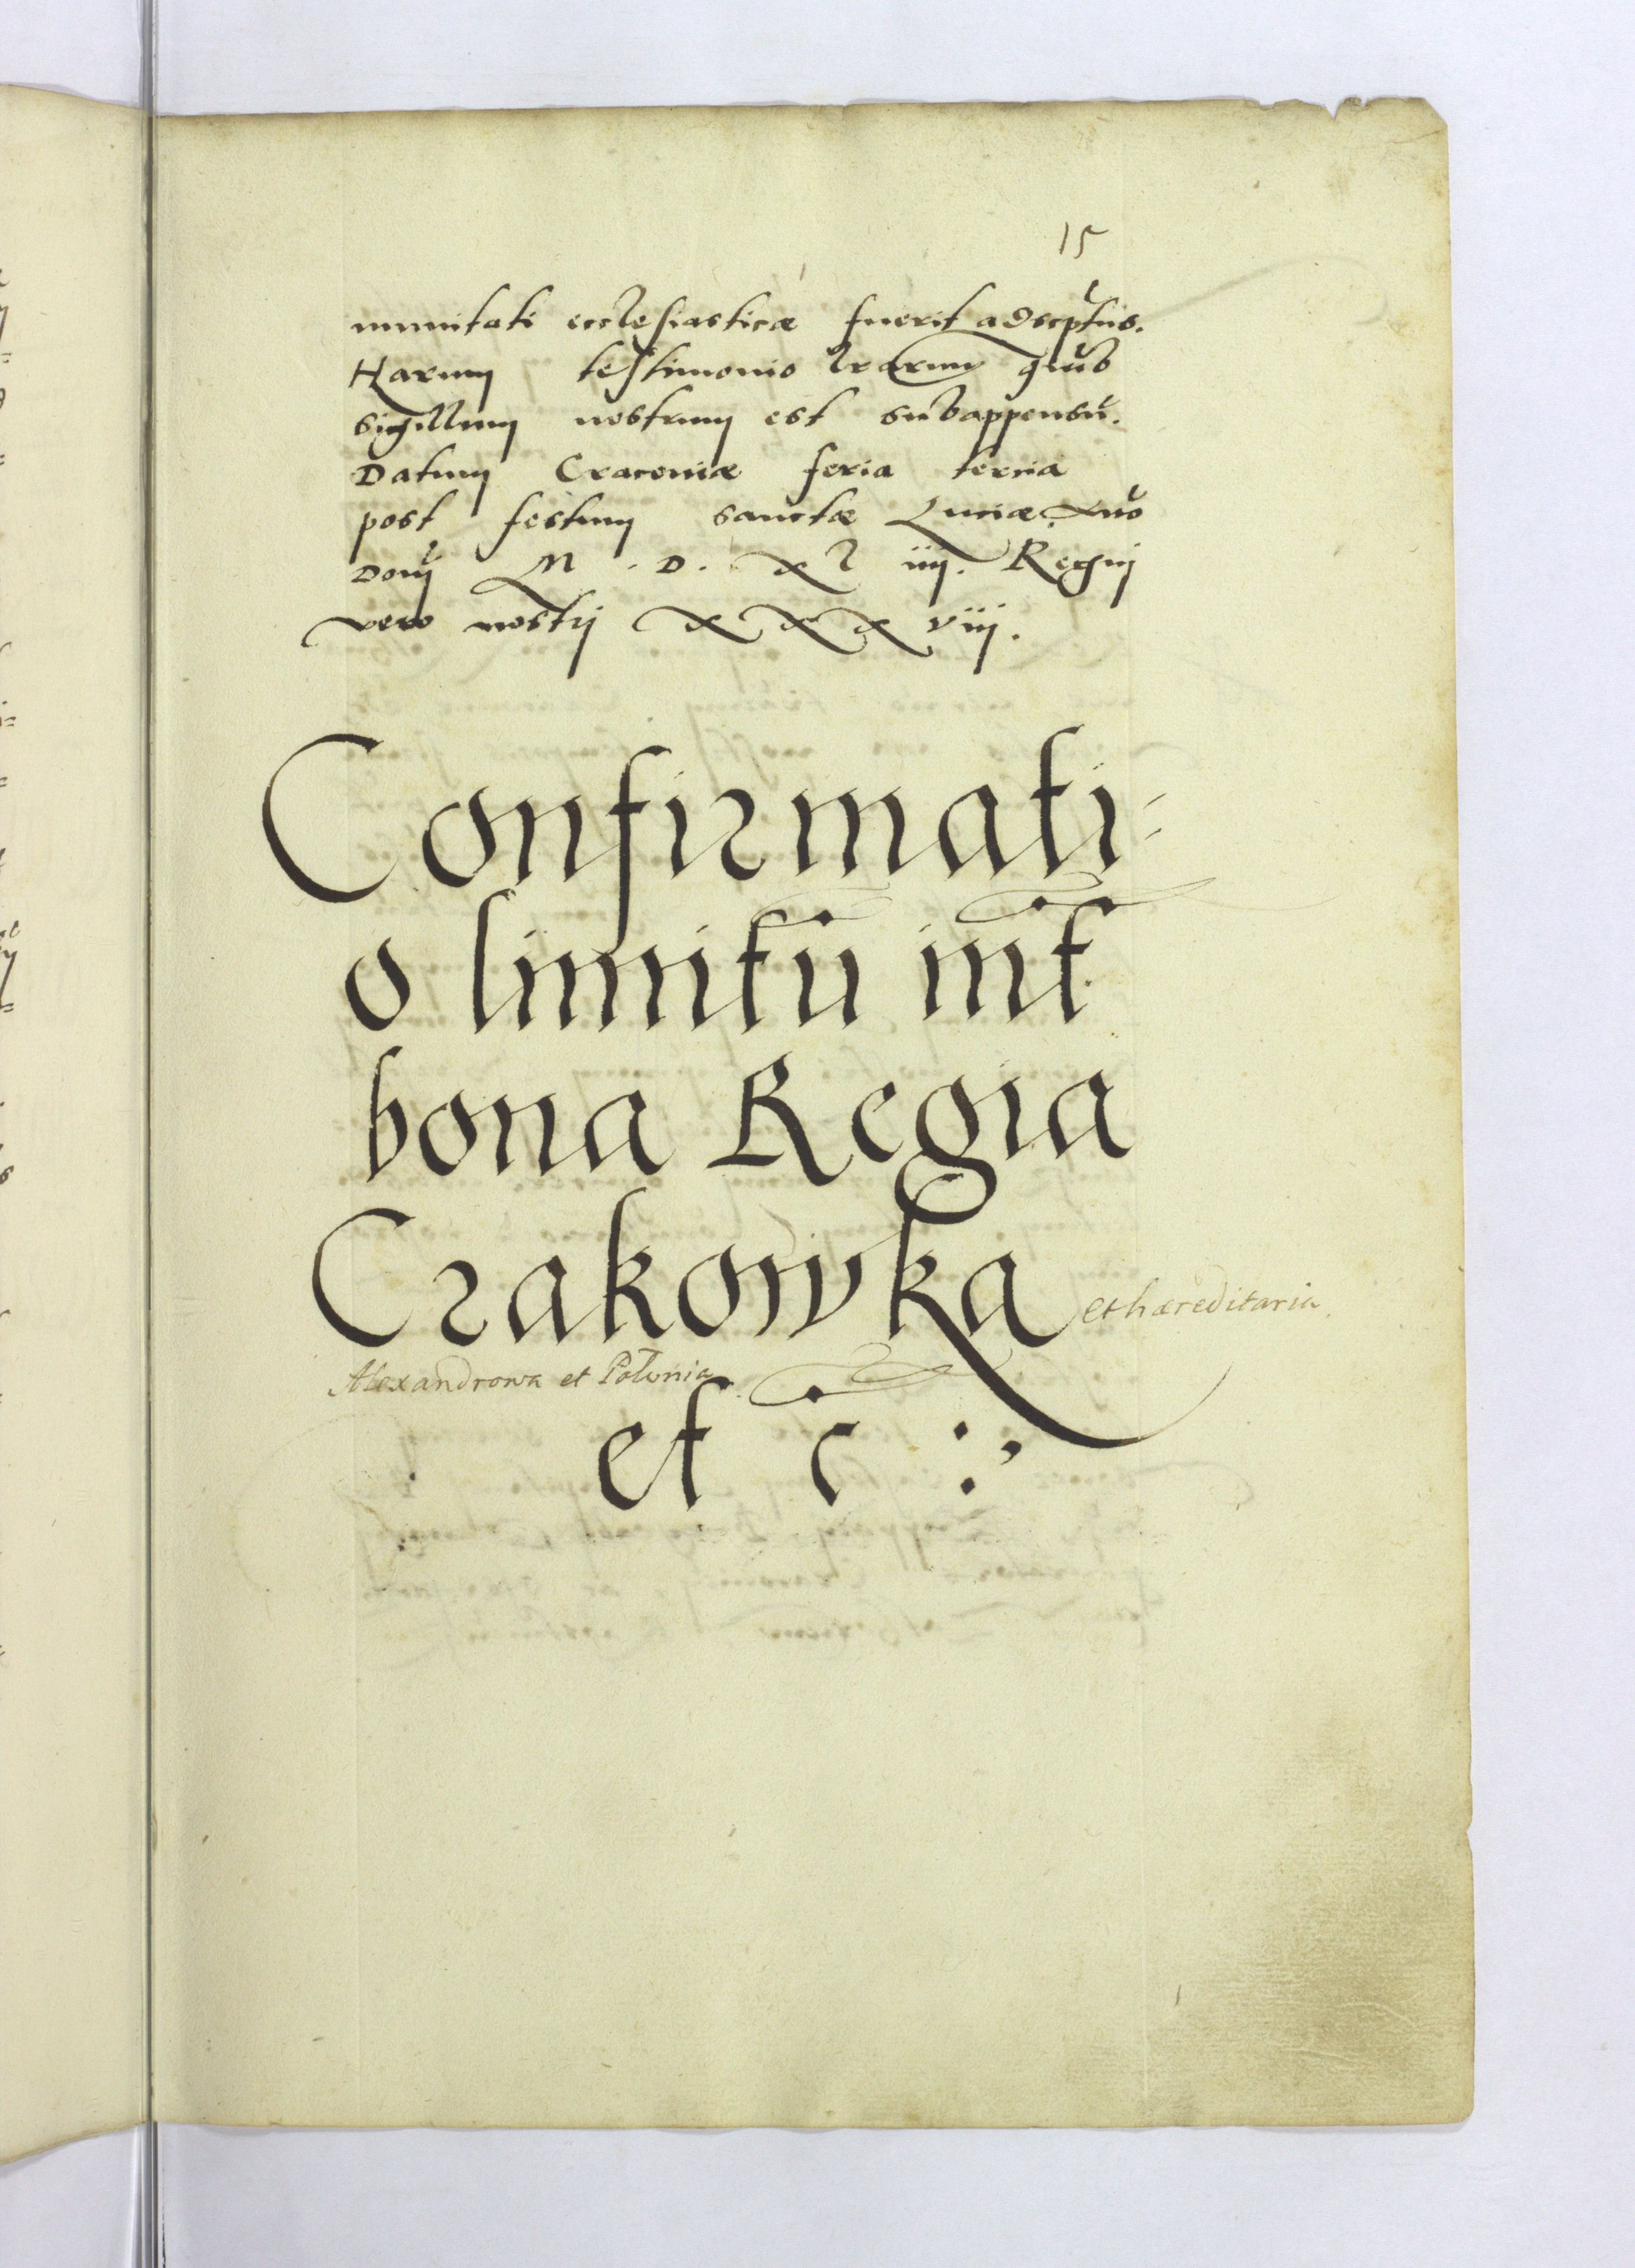 15
munitati ecclesiasticæ fuerit adscptus.
Harum testimonio lrarum quib
sigillum nostrum est subappensũ.
Datum Cracoviæ feria tercia
post festum sanctæ Luciæ. Año
Domj M. D. xl iiij. Regnj
vero nostrj xxxviij.
Confirmati=
o limitũ int
bona Regia
Crakowka et hæreditaria
Alexandrowa et Polonia.
et c :,